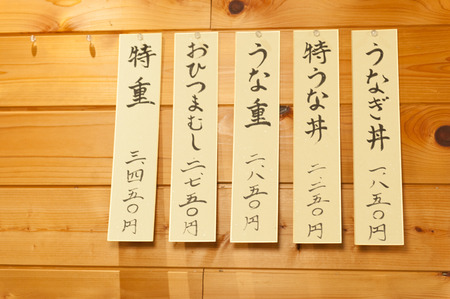 うなぎ丼 一、八五〇円
特うな丼 二、二五〇円
うな重 二、八五〇円
おひつまむし 二、七五〇円
特重 三、四五〇円